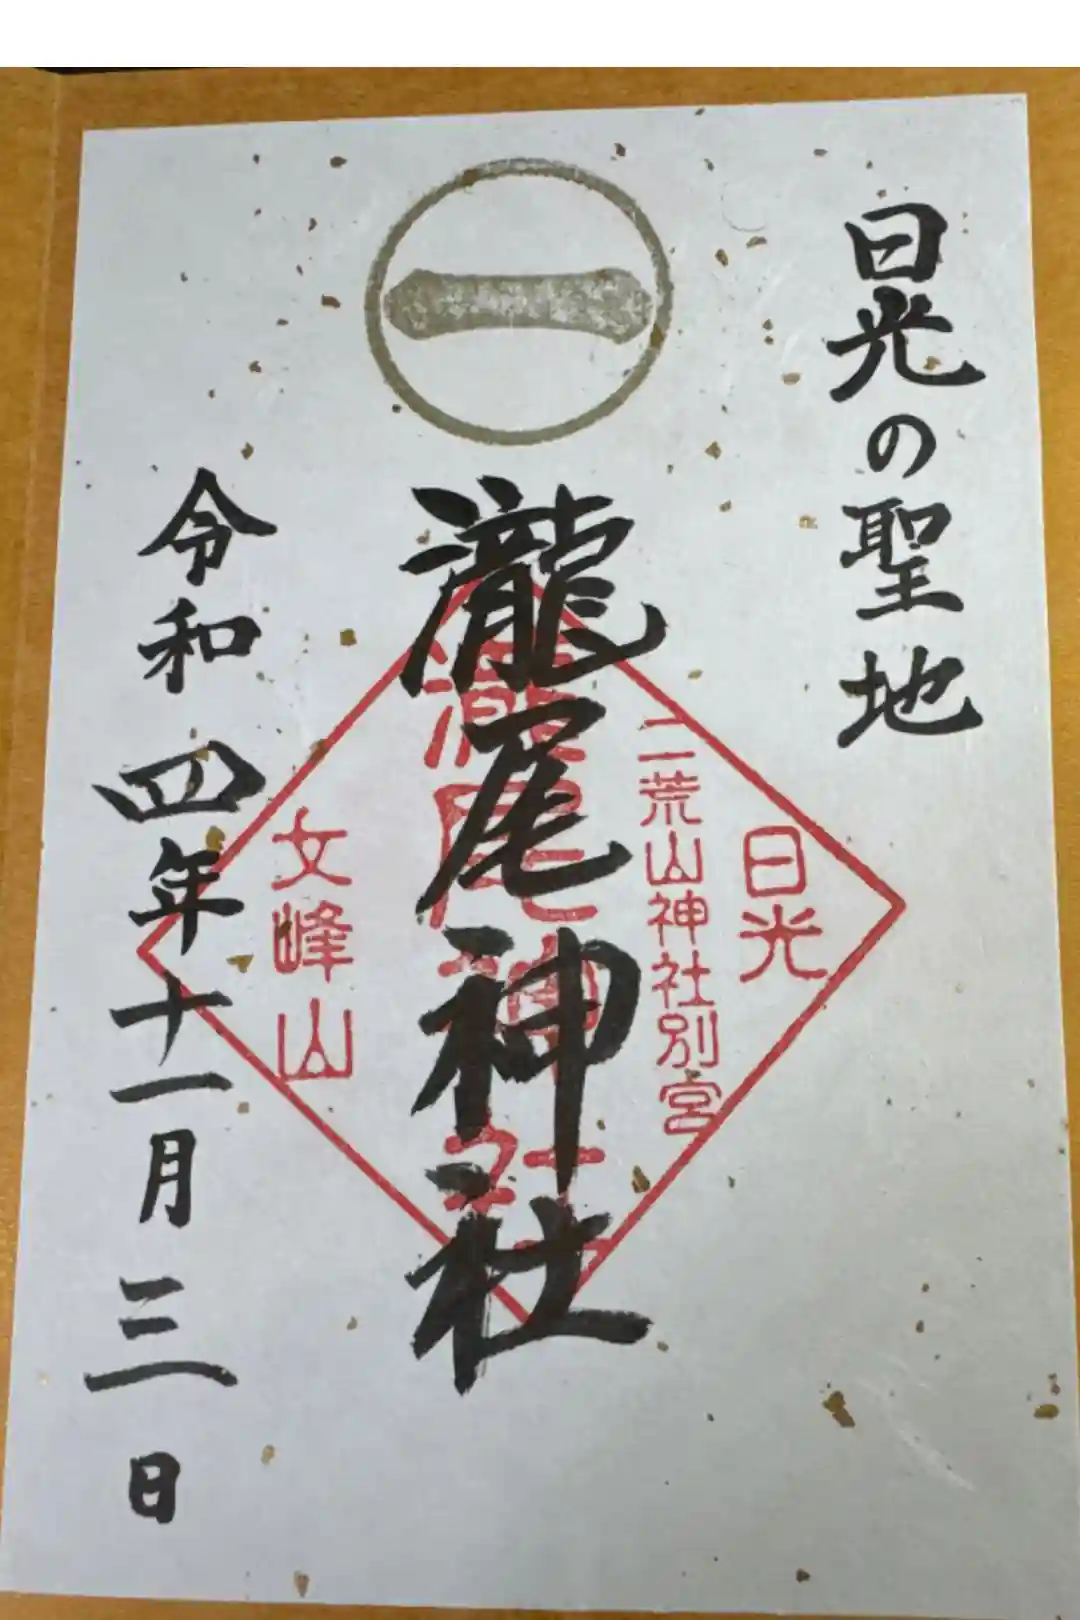 日光の聖地
一
瀧尾神社
日光
二荒山神社別宮
瀧尾神社
文峰山
令和四年十一月三日